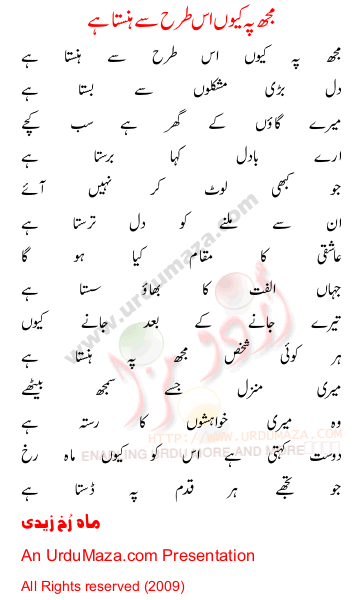 مجھ پہ کیوں اس طرح سے ہنستا ہے
مجھ پہ کیوں اس طرح سے ہنستا ہے
دل بڑی مشکلوں سے بستا ہے
میرے گاؤں کے گھر ہے سب کچے
ارے بادل کہا برستا ہے
جو کبھی لوٹ کر نہیں آئے
ان سے ملنے کو دل ترستا ہے
عاشقی کا مقام کیا ہو گا
جہاں الفت کا بھاؤ سستا ہے
تیرے جانے کے بعد جانے کیوں
ہر کوئی شخص مجھ پہ ہنستا ہے
میری منزل جسے سمجھ بیٹھے
وہ میری خواہشوں کا رستہ ہے
دوست کہتی ہے اس کو کیوں ماہ رخ
جو تجھے ہر قدم پہ ڈستا ہے
ماہ رُخ زیدی
An UrduMaza.com Presentation
All Rights reserved (2009)
www.urdumaza.com
اردو مزا
HTTP://WWW.URDUMAZA.COM
ENABLING URDU MORE AND MORE